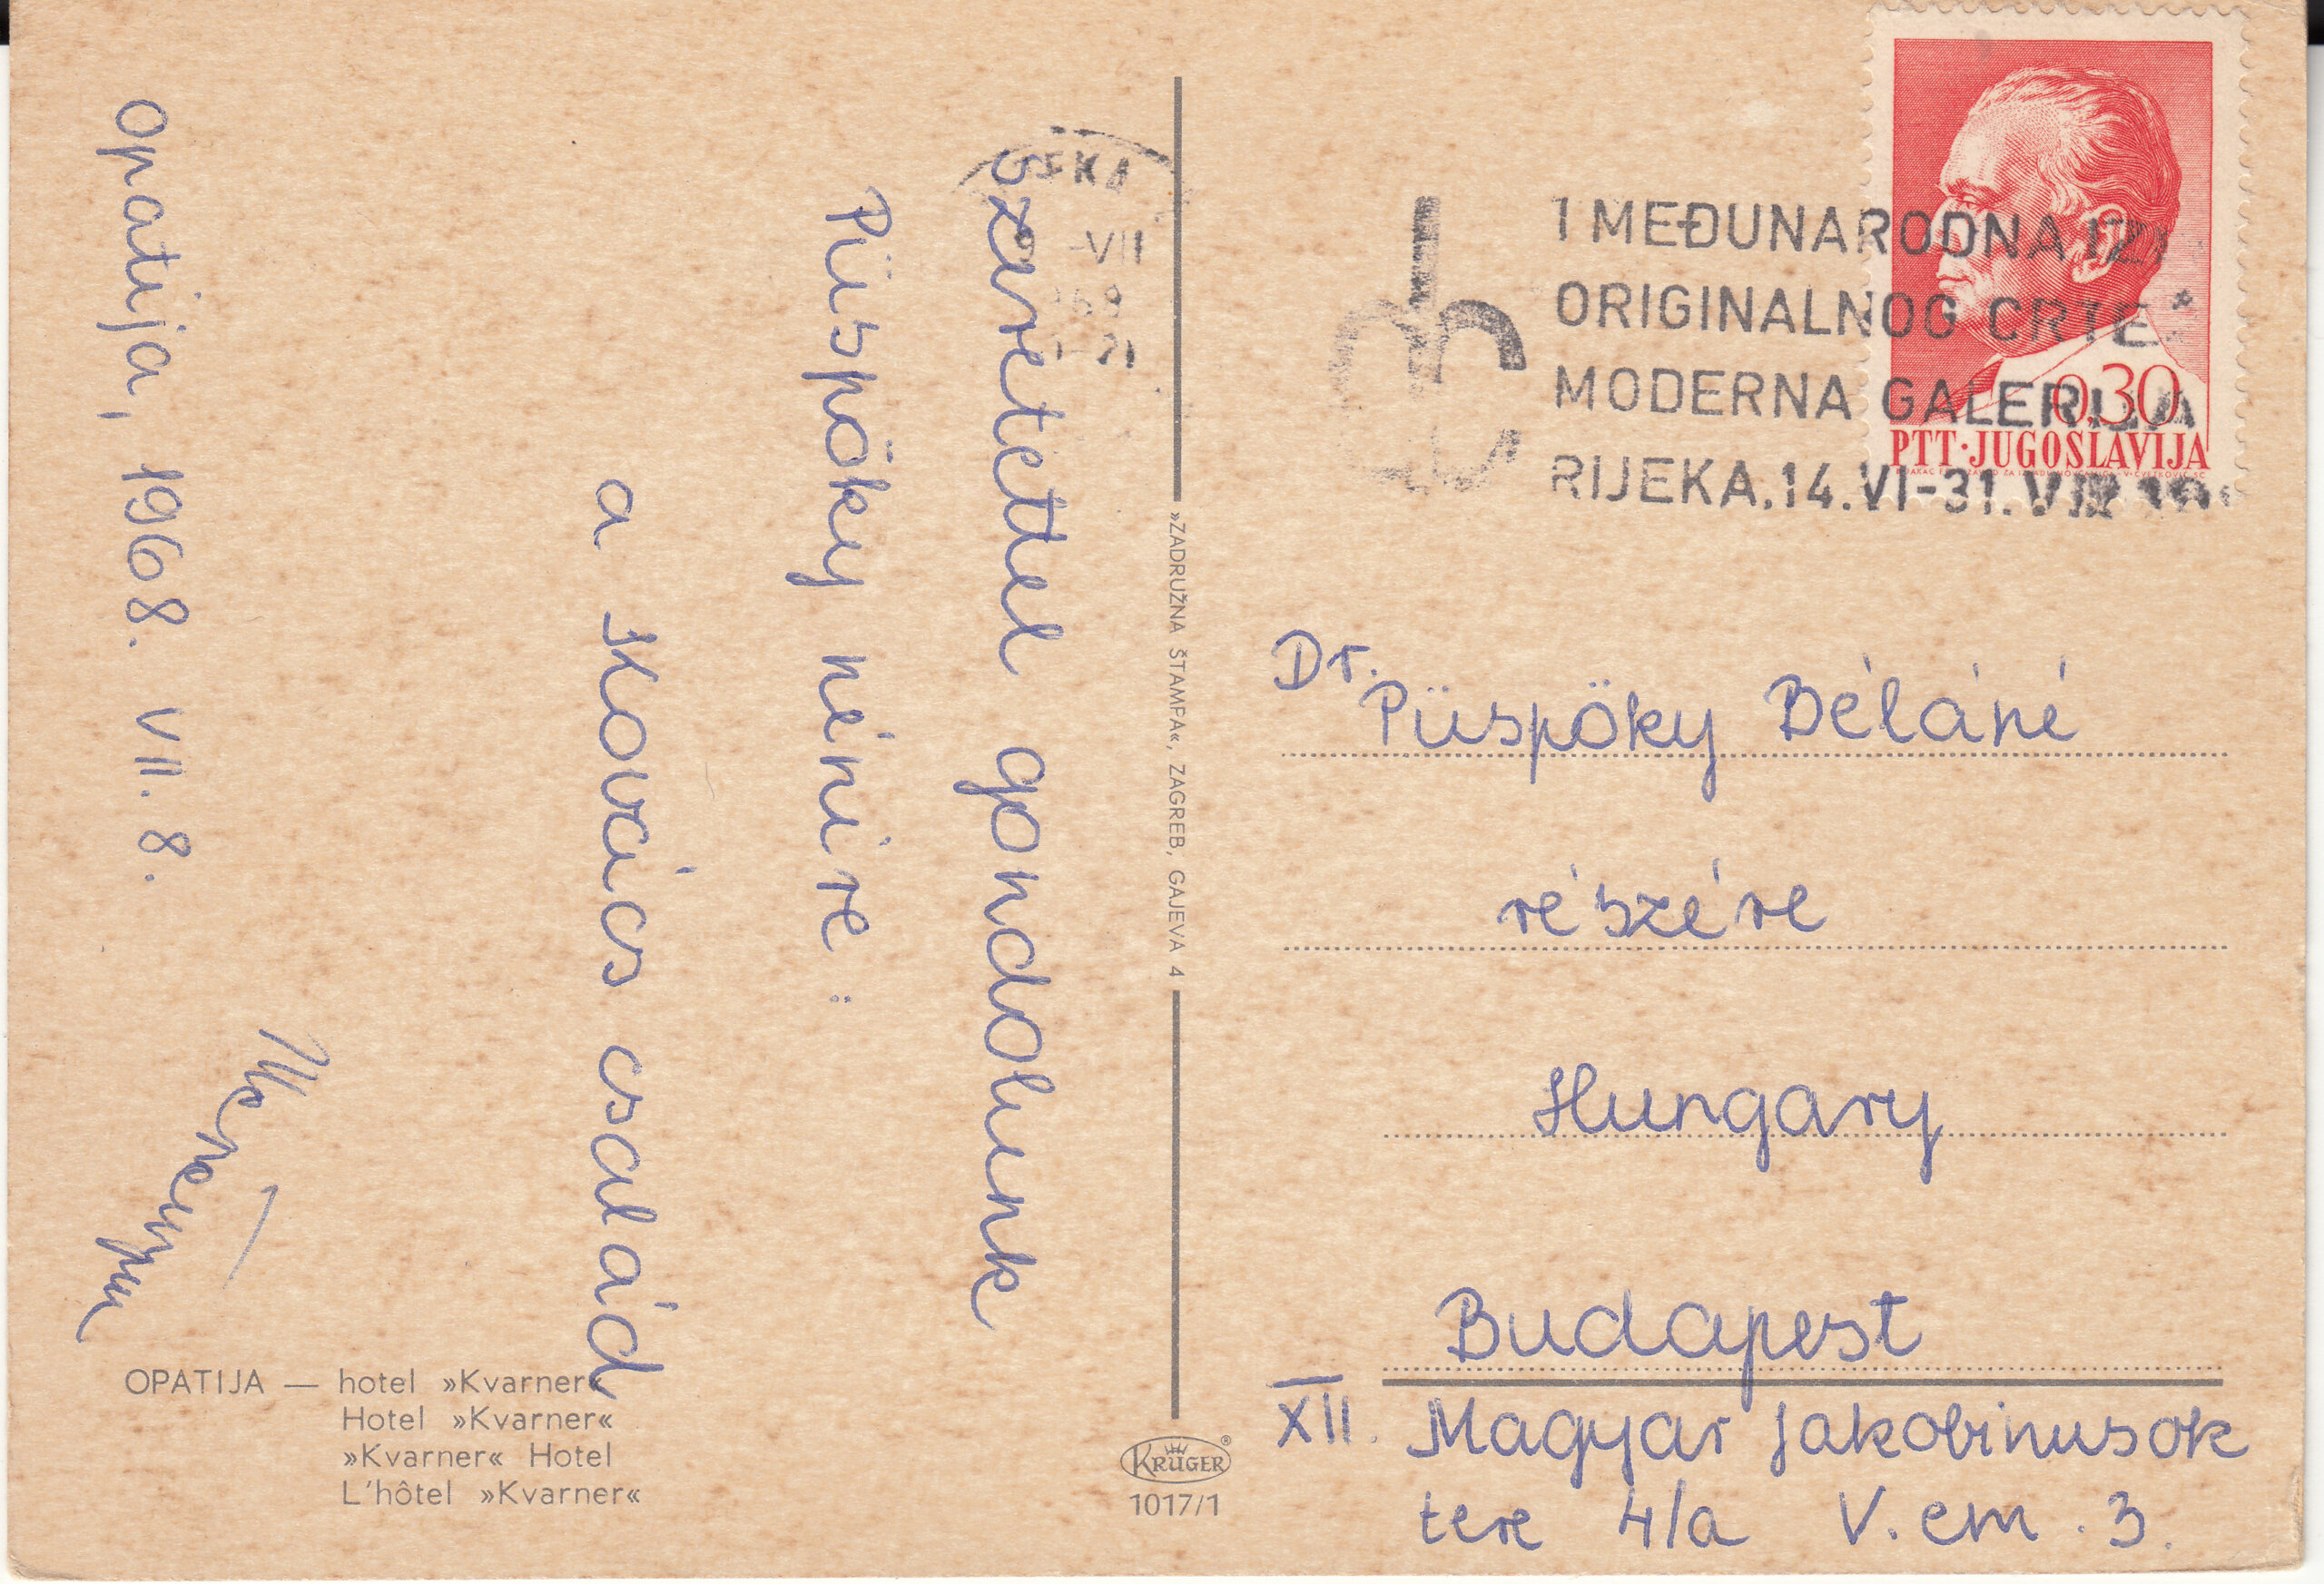 Opatija, 1968. VII. 8.
Szeretettel gondolunk
Püspöky nénire:
a Kovács család
OPATIJA — hotel »Kvarner«
Hotel »Kvarner«
»Kvarner« Hotel
L'hôtel »Kvarner«
»ZADRUŽNA ŠTAMPA«, ZAGREB, GAJEVA 4
KRÜGER®
1017/1
-VII
I MEĐUNARODNA
ORIGINALNOG
MODERNA GALERIJA
RIJEKA.14.VI-31.
0,30
PTT·JUGOSLAVIJA
Dr. Püspöky Béláné
részére
Hungary
Budapest
XII. Magyar Jakobinusok
tere 4/a V. em. 3.